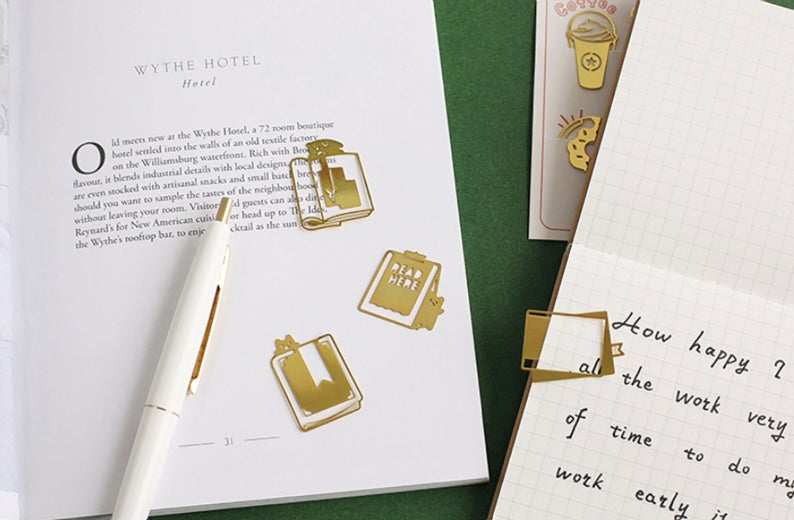 WYTHE HOTEL
Hotel
Old meets new at the Wythe Hotel, a 72 room boutique
hotel settled into the walls of an old textile factory
on the Williamsburg waterfront. Rich with
flavour, it blends industrial details with local designs. The
are even stocked with artisanal snacks and small batch
should you want to sample the tastes of the neighbourhood
without leaving your room. guests can also
Reynard's for New American or head up to The Ides,
the Wythe's rooftop bar, to as the sun
READ
HERE
31
Coffee
How happy ?
all the work very
of time to do my
work early